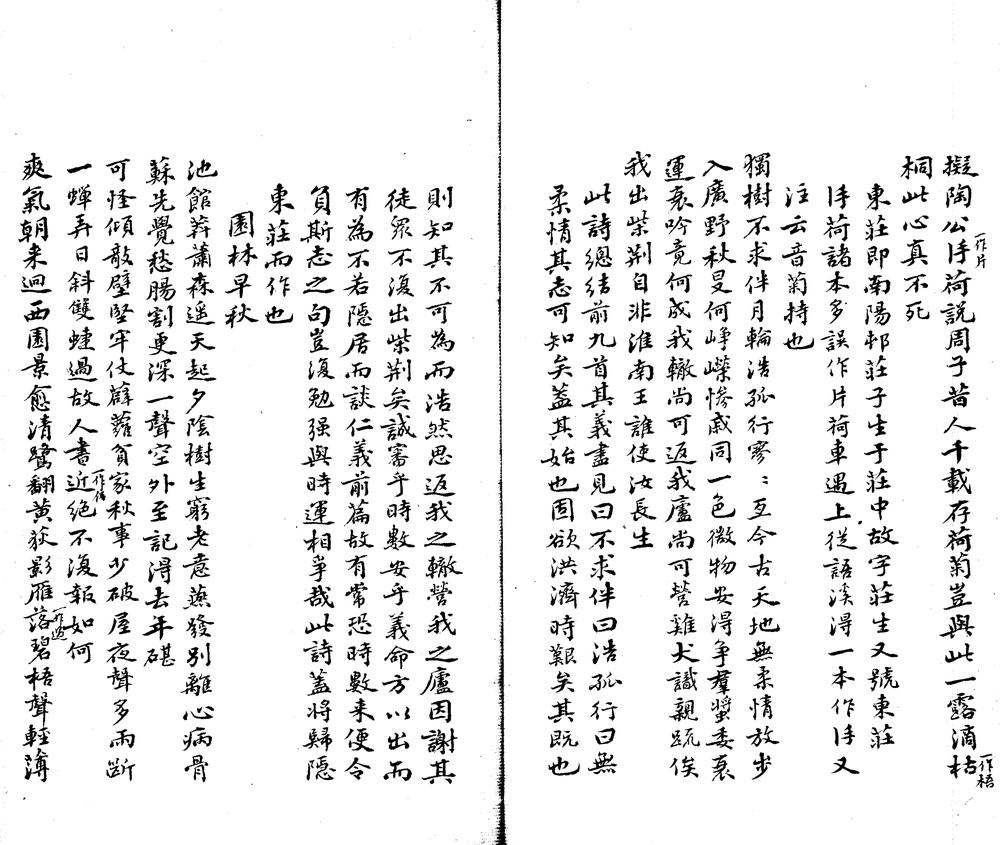 擬陶公浮荷説周子昔人千載存荷菊豈與此一露滴枯
一作片
一作梧
桐此心真不死
東莊即南陽邨莊子生于莊中故字莊生又號東莊
浮荷諸本多誤作片荷車遇上從語溪得一本作浮又
注云音菊持也
獨樹不求伴月輪浩孤行寥〻亙今古天地無柔情放步
入廣野秋旻何崢嶸慘慼同一色微物安得爭羣蛩委衰
運哀吟竟何成我轍尚可返我廬尚可營雞犬識親疏俟
我出柴荆自非淮南王誰使汝長生
此詩總結前九首其義盡見曰不求伴曰浩孤行曰無
柔情其志可知矣蓋其始也固欲洪濟時艱矣其既也
則知其不可為而浩然思返我之轍營我之廬因謝其
徒衆不復出柴荆矣誠審乎時數安乎義命方以出而
有為不若隱居而談仁義前篇故有常恐時數来便令
負斯志之句豈復勉强與時運相爭哉此詩蓋將歸隱
東莊而作也
園林早秋
池館蕭森遥天起夕陰樹生窮老意蕪發别離心病骨
蘇先覺愁腸割更深一聲空外至記得去年碪
可怪傾敧壁堅牢仗薜蘿貧家秋事少破屋夜聲多雨斷
一蟬弄日斜雙蜨過故人書近絶不復報如何
一作信
爽氣朝来迥西園景愈清鷺翻黄荻影雁落碧梧聲輕薄
一作過